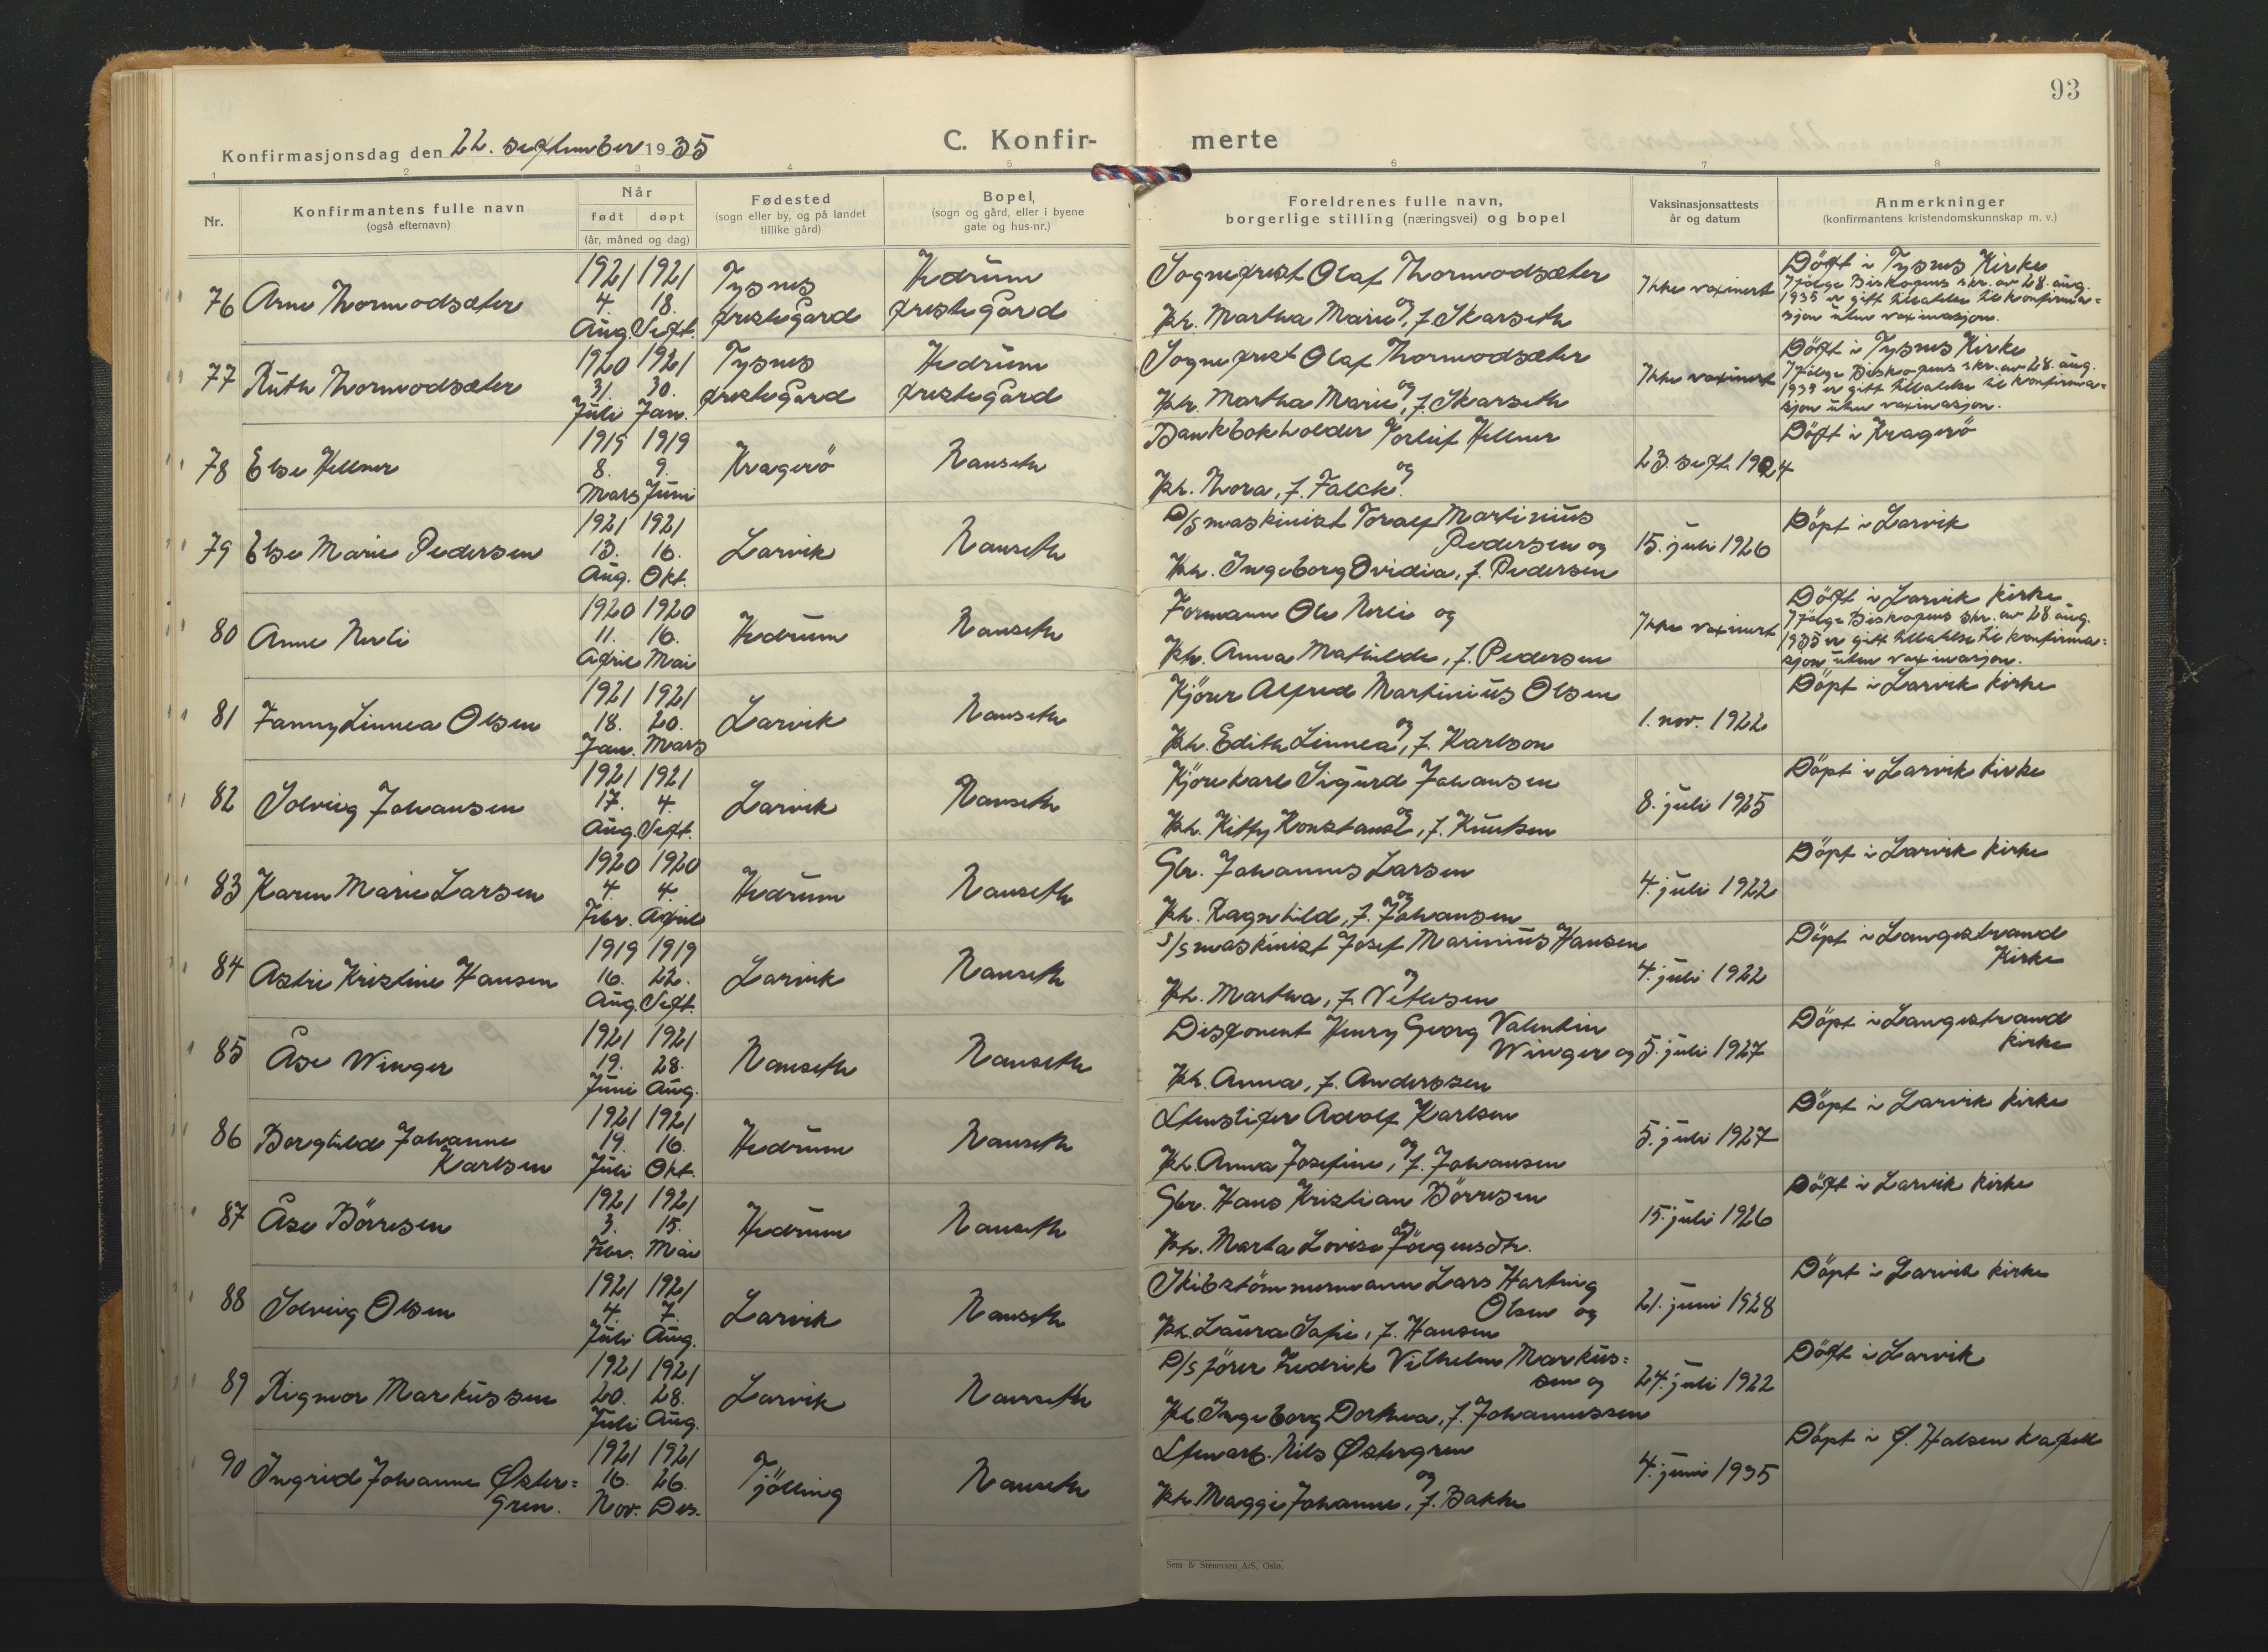 93
Konfirmasjonsdag den 22. september 1935
C. Konfir-
merte
1 2 3 4 5 6 7 8
Nr.
Konfirmantens fulle navn
(også efternavn)
Når
født døpt
(år, måned og dag)
Fødested
(sogn eller by, og på landet
tillike gård)
Bopel,
(sogn og gård, eller i byene
gate og hus-nr.)
Foreldrenes fulle navn,
borgerlige stilling (næringsvei) og bopel
Vaksinasjonsattests
år og datum
Anmerkninger
(konfirmantens kristendomskunnskap m. v.)
76 Arne Thormodsæter
1921 1921
4. 18.
Aug. Sept.
Tysnes
prestegard
Hedrum
prestegard
Sogneprest Olaf Thormodsæter
og
Hh. Martha Marie, f. Skarseth
Ikke vaxinert
Döpt i Tysnes Kirke
Ifölge Biskopens skr. av 28. aug.
1935 er gitt tillatelse til konfirma=
sjon uten vaxinasjon.
77 Ruth Thormodsæter
1920 1921
31. 30.
Juli Jan.
Tysnes
prestegard
Hedrum
prestegard
Sogneprest Olaf Thormodsæter
og
Hh. Martha Marie, f. Skarseth
Ikke vaxinert
Döpt i Tysnes Kirke
Ifölge Biskopens skr. av 28. aug.
1935 er gitt tillatelse til konfirma=
sjon uten vaxinasjon.
78 Else Hellner
1919 1919
8. 9.
Mars Juni
Kragerö
Nanseth
Bankbokholder Torleif Hellner
og
Hh. Thora, f. Falck.
23. sept. 1924
Döpt i Kragerö
79 Else Marie Pedersen
1921 1921
13. 16.
Aug. Okt.
Larvik
Nanseth
D/S maskinist Toralf Martinius
Pedersen og
Hh. Ingeborg Ovidia, f. Pedersen
15. juli 1926
Döpt i Larvik
80 Anne Nerli
1920 1920
11. 16.
April Mai
Hedrum
Nanseth
Formann Ole Nerli og
Hh. Anna Mathilde, f. Pedersen
Ikke vaxinert
Döpt i Larvik kirke
Ifölge Biskopens skr. av 28. aug.
1935 er gitt tillatelse til konfirma=
sjon uten vaxinasjon.
81 Fanny Linnea Olsen
1921 1921
18. 20.
Jan. Mars
Larvik
Nanseth
Kjörer Alfred Martinius Olsen
og
Hh. Edith Linnea, f. Karlson
1. nov. 1922
Döpt i Larvik kirke
82 Solveig Johansen
1921 1921
17. 4.
Aug. Sept.
Larvik
Nanseth
Kjörekarl Sigurd Johansen
og
Hh. Kitty Konstanse, f. Knutsen
8. juli 1925
Döpt i Larvik kirke
83 Karen Marie Larsen
1920 1920
4. 4.
Febr. April
Hedrum
Nanseth
Gbr. Johannes Larsen
og
Hh. Ragnhild, f. Johansen
4. juli 1922
Döpt i Larvik kirke
84 Astri Kristine Hansen
1919 1919
16. 22.
Aug. Sept.
Larvik
Nanseth
S/S maskinist Josef Marinius Hansen
og
Hh. Martha, f.
4. juli 1922
Döpt i Langestrand
Kirke
85 Åse Winger
1921 1921
19. 28.
Juni Aug.
Nanseth
Nanseth
Disponent Henry Georg Valentin
Winger og
Hh. Anna, f. Anderssen
5. juli 1927
Döpt i Langestrand
kirke
86 Borghild Johanne
Karlsen
1921 1921
19. 16.
Juli Okt.
Hedrum
Nanseth
Stensliper Adolf Karlsen
og
Hh. Anna Josefine, f. Johansen
5. juli 1927
Döpt i Larvik kirke
87 Åse Börresen
1921 1921
3. 15.
Febr. Mai
Hedrum
Nanseth
Gbr. Hans Kristian Börresen
og
Hh. Marta Lovise Jörgensdtr.
15. juli 1926
Döpt i Larvik kirke
88 Solveig Olsen
1921 1921
4. 7.
Juli Aug.
Larvik
Nanseth
Skibstömmermann Lars Hartvig
Olsen og
Hh. Laura Sofie, f. Hansen
21. juni 1928
Döpt i Larvik kirke
89 Rigmor Markussen
1921 1921
20. 28.
Juli Aug.
Larvik
Nanseth
D/S förer Fredrik Vilhelm Markus=
sen og
Hh. Ingeborg Dorthea, f. Johannessen
24. juli 1922
Döpt i Larvik
90 Ingrid Johanne Øster=
gren.
1921 1921
16. 26.
Nov. Des.
Tjölling
Nanseth
Stenarb. Nils Østergren
og
Hh. Maggi Johanne, f. Bakke
4. juni 1935
Döpt i Ø. Halsen kapell
Sem & Stenersen A/S, Oslo.